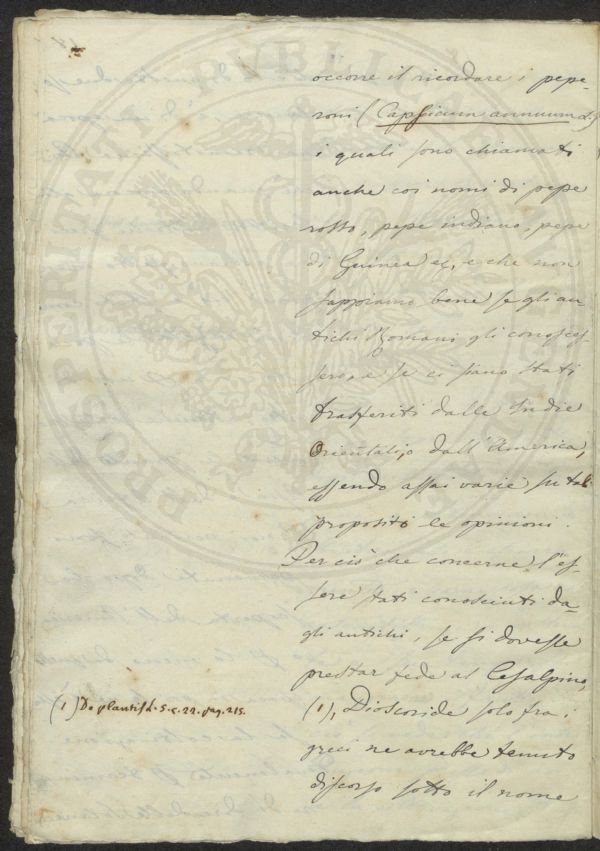 occorre il ricordare i pepe-
roni (Capsicum annuum L.)
i quali sono chiamati
anche coi nomi di pepe
rosso, pepe indiano, pepe
di Guinea ec, e che non
sappiamo bene se gli an-
tichi Romani gli conosces-
sero, e se ci siano stati
trasferiti dalle Indie
Orientali, o dall'America,
essendo assai varie su tal
proposito le opinioni.
Per ciò che concerne l'es-
sere stati conosciuti da-
gli antichi, se si dovesse
prestar fede al Cesalpino,
(1), Dioscoride solo fra i
greci ne avrebbe tenuto
discorso sotto il nome
(1) De plantis L. 5. c. 22. pag. 215.
PROSPERITATI PVBLICAE